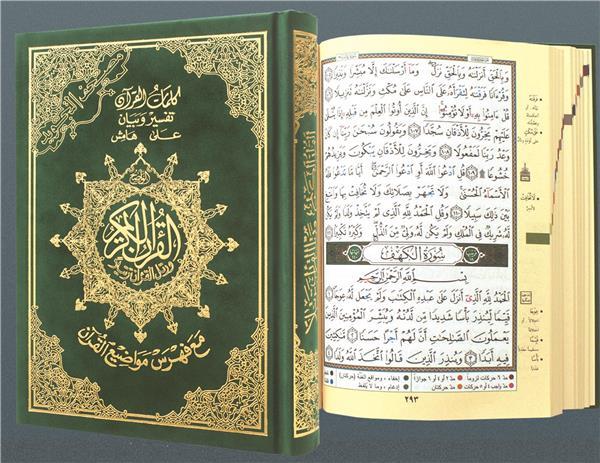 مصحف التجويد
كلمات القرآن
تفسير وبيان
على هامش
القرآن الكريم
ورتل القرآن ترتيلا
مع فهرس مواضيع القرآن
وَبِالْحَقِّ أَنزَلْنَاهُ وَبِالْحَقِّ نَزَلَ وَمَا أَرْسَلْنَاكَ إِلَّا مُبَشِّرًا وَنَذِيرًا
وَقُرْآنًا فَرَقْنَاهُ لِتَقْرَأَهُ عَلَى النَّاسِ عَلَىٰ مُكْثٍ وَنَزَّلْنَاهُ تَنزِيلًا
قُلْ آمِنُوا بِهِ أَوْ لَا تُؤْمِنُوا إِنَّ الَّذِينَ أُوتُوا الْعِلْمَ مِن قَبْلِهِ إِذَا يُتْلَىٰ
عَلَيْهِمْ يَخِرُّونَ لِلْأَذْقَانِ سُجَّدًا وَيَقُولُونَ سُبْحَانَ رَبِّنَا إِن كَانَ
وَعْدُ رَبِّنَا لَمَفْعُولًا وَيَخِرُّونَ لِلْأَذْقَانِ يَبْكُونَ وَيَزِيدُهُمْ
خُشُوعًا قُلِ ادْعُوا اللَّهَ أَوِ ادْعُوا الرَّحْمَٰنَ أَيًّا مَّا تَدْعُوا فَلَهُ
الْأَسْمَاءُ الْحُسْنَىٰ وَلَا تَجْهَرْ بِصَلَاتِكَ وَلَا تُخَافِتْ بِهَا وَابْتَغِ
بَيْنَ ذَٰلِكَ سَبِيلًا وَقُلِ الْحَمْدُ لِلَّهِ الَّذِي لَمْ يَتَّخِذْ وَلَدًا وَلَمْ يَكُن
لَّهُ شَرِيكٌ فِي الْمُلْكِ وَلَمْ يَكُن لَّهُ وَلِيٌّ مِّنَ الذُّلِّ وَكَبِّرْهُ تَكْبِيرًا
سُورَةُ الْكَهْفِ
بِسْمِ اللَّهِ الرَّحْمَٰنِ الرَّحِيمِ
الْحَمْدُ لِلَّهِ الَّذِي أَنزَلَ عَلَىٰ عَبْدِهِ الْكِتَابَ وَلَمْ يَجْعَل لَّهُ عِوَجًا
قَيِّمًا لِّيُنذِرَ بَأْسًا شَدِيدًا مِّن لَّدُنْهُ وَيُبَشِّرَ الْمُؤْمِنِينَ الَّذِينَ
يَعْمَلُونَ الصَّالِحَاتِ أَنَّ لَهُمْ أَجْرًا حَسَنًا مَّاكِثِينَ
فِيهِ أَبَدًا وَيُنذِرَ الَّذِينَ قَالُوا اتَّخَذَ اللَّهُ وَلَدًا
مدّ ٦ حركات لزوماً مدّ ٢ أو ٤ أو ٦ جوازاً إخفاء، ومواقع الغنّة (حركتان)
مدّ واجب ٤ أو ٥ حركات مدّ حركتان إدغام، وما لا يُلفظ
٢٩٣